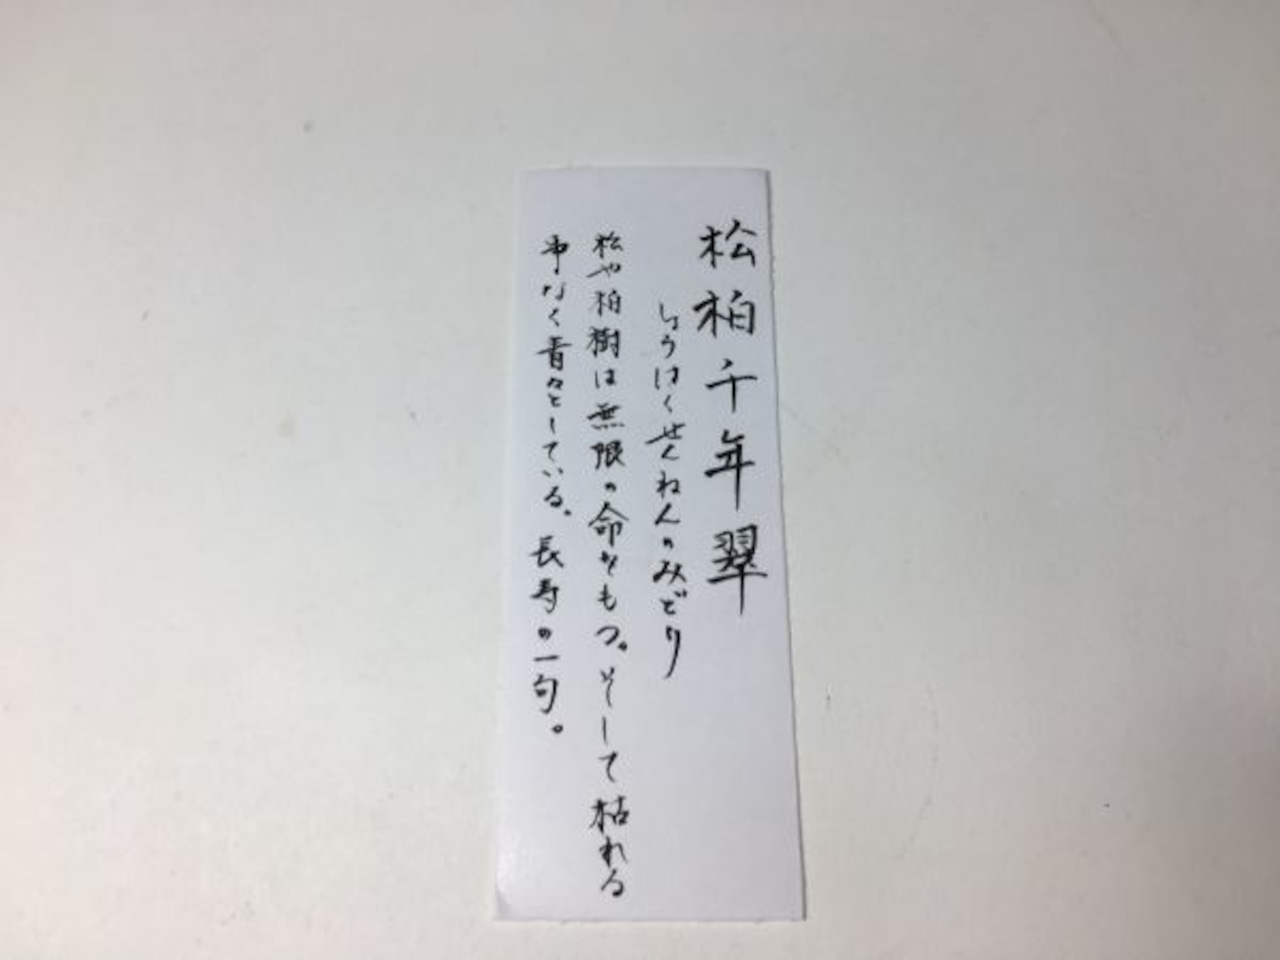 松柏千年翠
しょうはくせんねんのみどり
松や柏樹は無限の命をもつ。そして枯れる
事なく青々としている。長寿の一句。